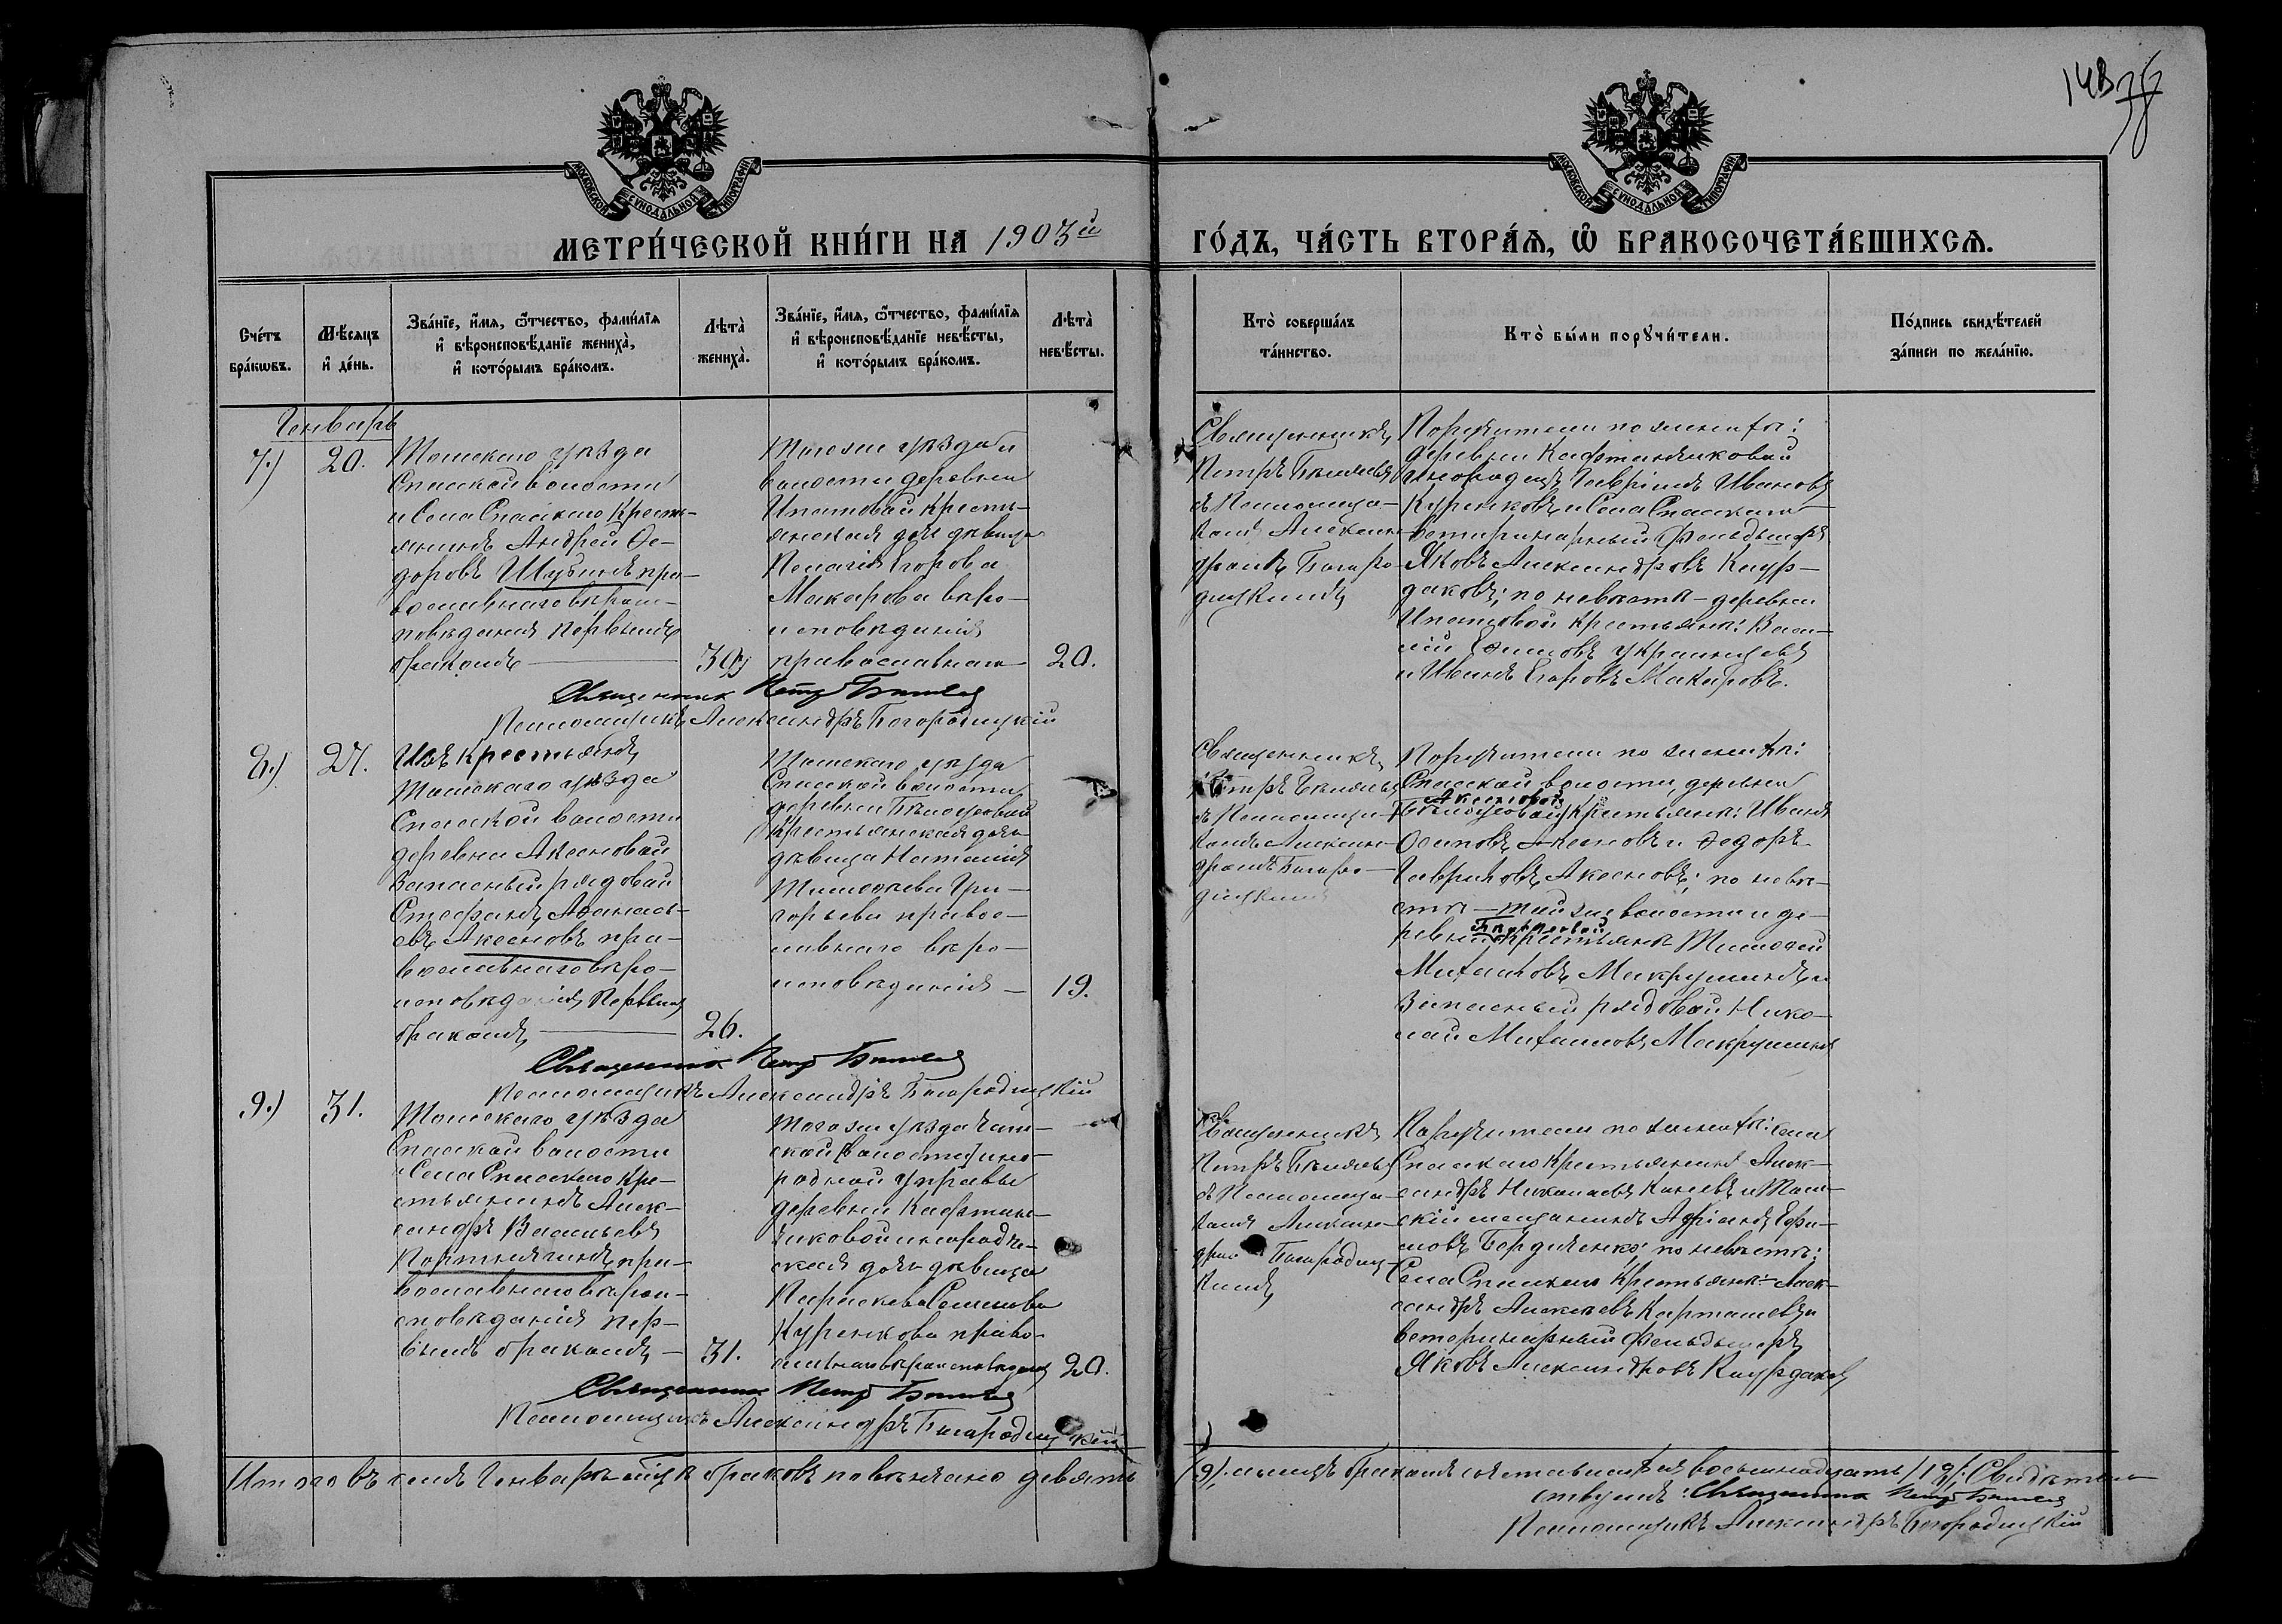 148
38
МОСКОВСКОЙ СѴНОДАЛЬНОЙ ТИПОГРАФІИ
МОСКОВСКОЙ СѴНОДАЛЬНОЙ ТИПОГРАФІИ
МЕТРИ́ЧЕСКОЙ КНИ́ГИ НА 1903й
ГО́ДЪ, ЧА́СТЬ ВТОРА́Ѧ, Ѿ БРАКОСОЧЕТА́ВШИХСѦ.
Сче́тъ бра́кѡвъ.
Мѣ́сяцъ и҆ де́нь.
Зва́нїе, и҆́мѧ, ѻ҆́тчество, фами́лїѧ
и҆ вѣроисповѣ́данїе жениха̀,
и҆ кото́рымъ бра́комъ.
Лѣта̀ жениха̀.
Зва́нїе, и҆́мѧ, ѻ҆́тчество, фами́лїѧ
и҆ вѣроисповѣ́данїе невѣ́сты,
и҆ кото́рымъ бра́комъ.
Лѣта̀ невѣ́сты.
Кто̀ соверша́лъ та́инство.
Кто̀ бы́ли порꙋчи́тели.
По́дпись свидѣ́телей
за́писи по жела́нїю.
Генварь
7.)
20.
Томскаго уѣзда
Спасской волости
и Села Спасскаго Кресть-
янинъ Андрей Ѳе-
доровъ Шубинъ пра-
вославнаго вѣроис-
повѣданія первымъ
бракомъ
30
Тогоже уѣзда и
волости деревни
Ипатовой кресть-
янская дочь дѣвица
Пелагія Егорова
Макарова вѣро-
исповѣданія
православнаго
20.
Священникъ
Петръ Бѣляевъ
съ Псаломщи-
комъ Алексан-
дромъ Богоро-
дицкимъ
Поручители по женихѣ:
деревни Кафтанчиковой
инородецъ Гавріилъ Ивановъ
Куренковъ и Села Спасскаго
ветеринарный фельдшеръ
Яковъ Александровъ Каур-
даковъ; по невѣстѣ - деревни
Ипатовой крестьяне: Васи-
лій Ефимовъ Украинцевъ
и Иванъ Егоровъ Макаровъ.
Священникъ Петръ Бѣляевъ
Псаломщикъ Александръ Богородицкій
8.)
27.
Изъ крестьянъ
Томскаго уѣзда
Спасской волости
деревни Аксеновой
Запасный рядовой
Стефанъ Аѳанась-
евъ Аксеновъ пра-
вославнаго вѣро-
исповѣданія, первымъ
бракомъ
26.
Томскаго уѣзда
Спасской волости
деревни Бѣлоусовой
Крестьянская дочь
дѣвица Наталія
Тимоѳеева Гри-
горьева правос-
лавнаго вѣро-
исповѣданія
19.
Священникъ
Петръ Бѣляевъ
съ Псаломщи-
комъ Алексан-
дромъ Богоро-
дицкимъ
Поручители по женихѣ:
Спасской волости, деревни
Аксеновой
Бѣлоусовой крестьяне: Иванъ
Осиповъ Аксеновъ и Ѳедоръ
Гавриловъ Аксеновъ; по невѣ-
стѣ - той же волости и де-
ревни крестьяне Тимоѳей
Михаиловъ Макрушинъ и
Запасный рядовой Нико-
лай Михаиловъ Макрушинъ
Священникъ Петръ Бѣляевъ
Псаломщикъ Александръ Богородицкій
9.)
31.
Томскаго уѣзда
Спасской волости
и Села Спасскаго Кре-
стьянинъ Алек-
сандръ Васильевъ
Портнягинъ, пра-
вославнаго вѣрои-
сповѣданія пер-
вымъ бракомъ
31.
Тогоже уѣзда Чат-
ской (волости) ино-
родной управы
деревни Кафтан-
чиковой инородче-
ская дочь дѣвица
Параскева Семенова
Куренкова право-
славнаго вѣроисповѣданія
20.
Священникъ
Петръ Бѣляевъ
съ Псаломщи-
комъ Алексан-
дром Богородиц-
кимъ
Поручители по женихѣ: села
Спасскаго Крестьянинъ Алек-
сандръ Николаевъ и Том-
скій мещанинъ Адріанъ Ефи-
мовъ Бердяенко; по невѣстѣ:
Села Спасскаго Крестьяне: Алек-
сандръ Алексѣевъ Карташевъ и
ветеринарный фельдшеръ
Яковъ Александровъ Каурдаковъ
Священникъ Петръ Бѣляевъ
Псаломщикъ Александръ Богородицкій
Итого въ семъ Генварѣ мѣсяцѣ браковъ повѣнчано девять
/9/, а лицъ бракомъ сочетавшихся восьмнадцать /18/. Свидѣтель-
ствуемъ: Священникъ Петръ Бѣляевъ
Псаломщикъ Александръ Богородицкій